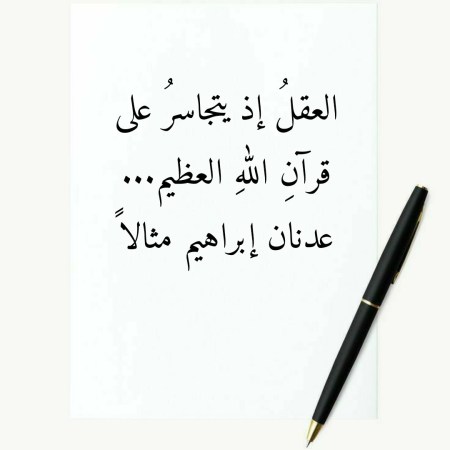 العقلُ إذ يتجاسرُ على
قرآنِ اللهِ العظيم...
عدنان إبراهيم مثالاً